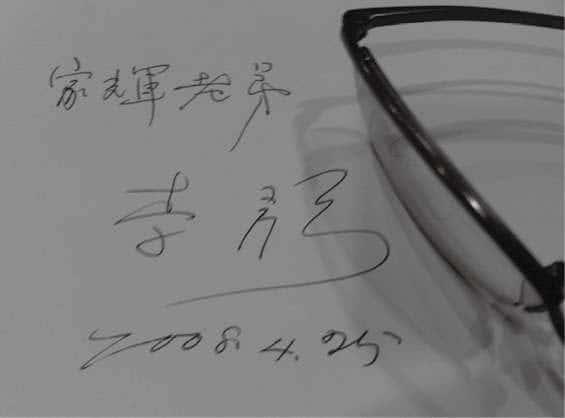 家輝老弟
李敖
2008.4.25